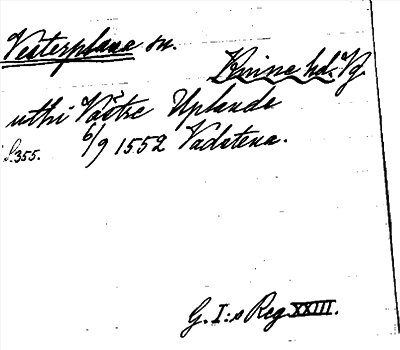 Vesterplane sn.
Kinne hd. Vg.
uthi Våstre Uplande
S. 355. 6/9 1552 Vadstena.
G. I:s Reg. XXIII.